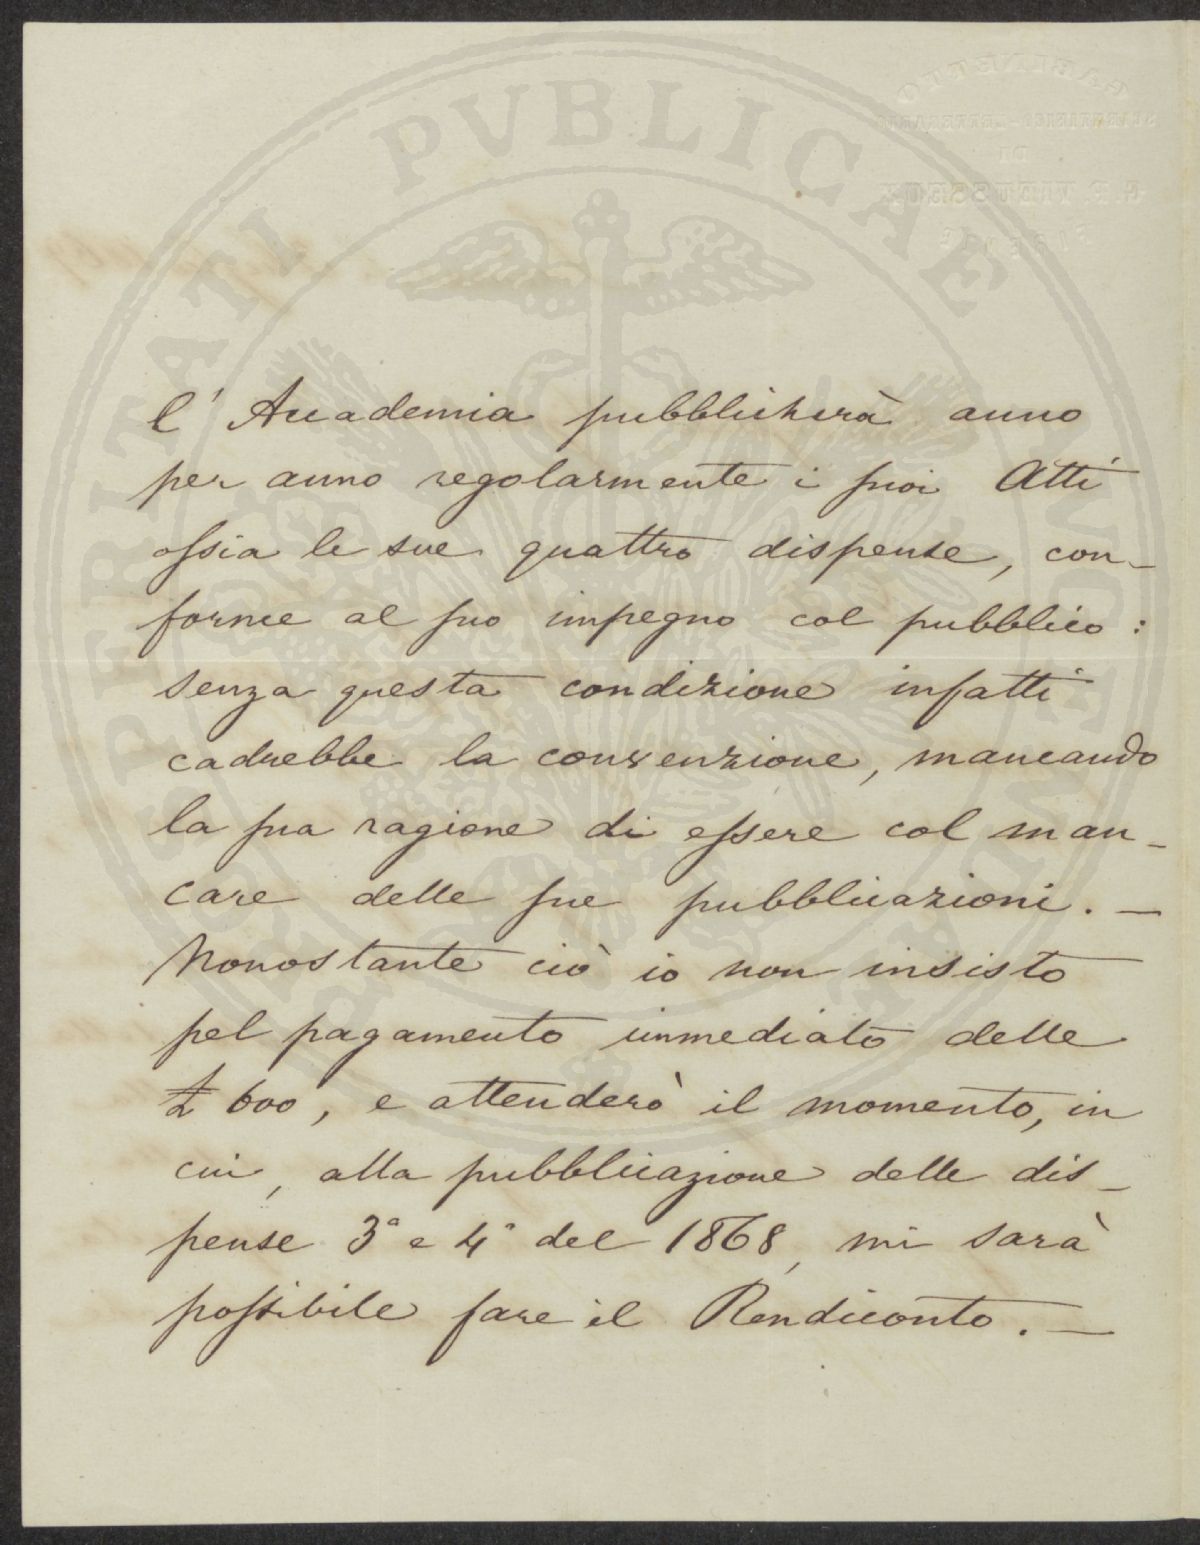 l'Accademia pubblicherà anno
per anno regolarmente i suoi Atti
ossia le sue quattro dispense, con-
forme al suo impegno col pubblico:
senza questa condizione infatti
cadrebbe la convenzione, mancando
la sua ragione di essere col man-
care delle sue pubblicazioni. —
Nonostante ciò io non insisto
pel pagamento immediato delle
£ 600, e attenderò il momento, in
cui, alla pubblicazione delle dis-
pense 3ª e 4ª del 1868, mi sarà
possibile fare il Rendiconto. —
GABINETTO
SCIENTIFICO-LETTERARIO
DI
G. P. VIEUSSEUX
FIRENZE
PROSPERITATI PVBLICAE AVGENDAE